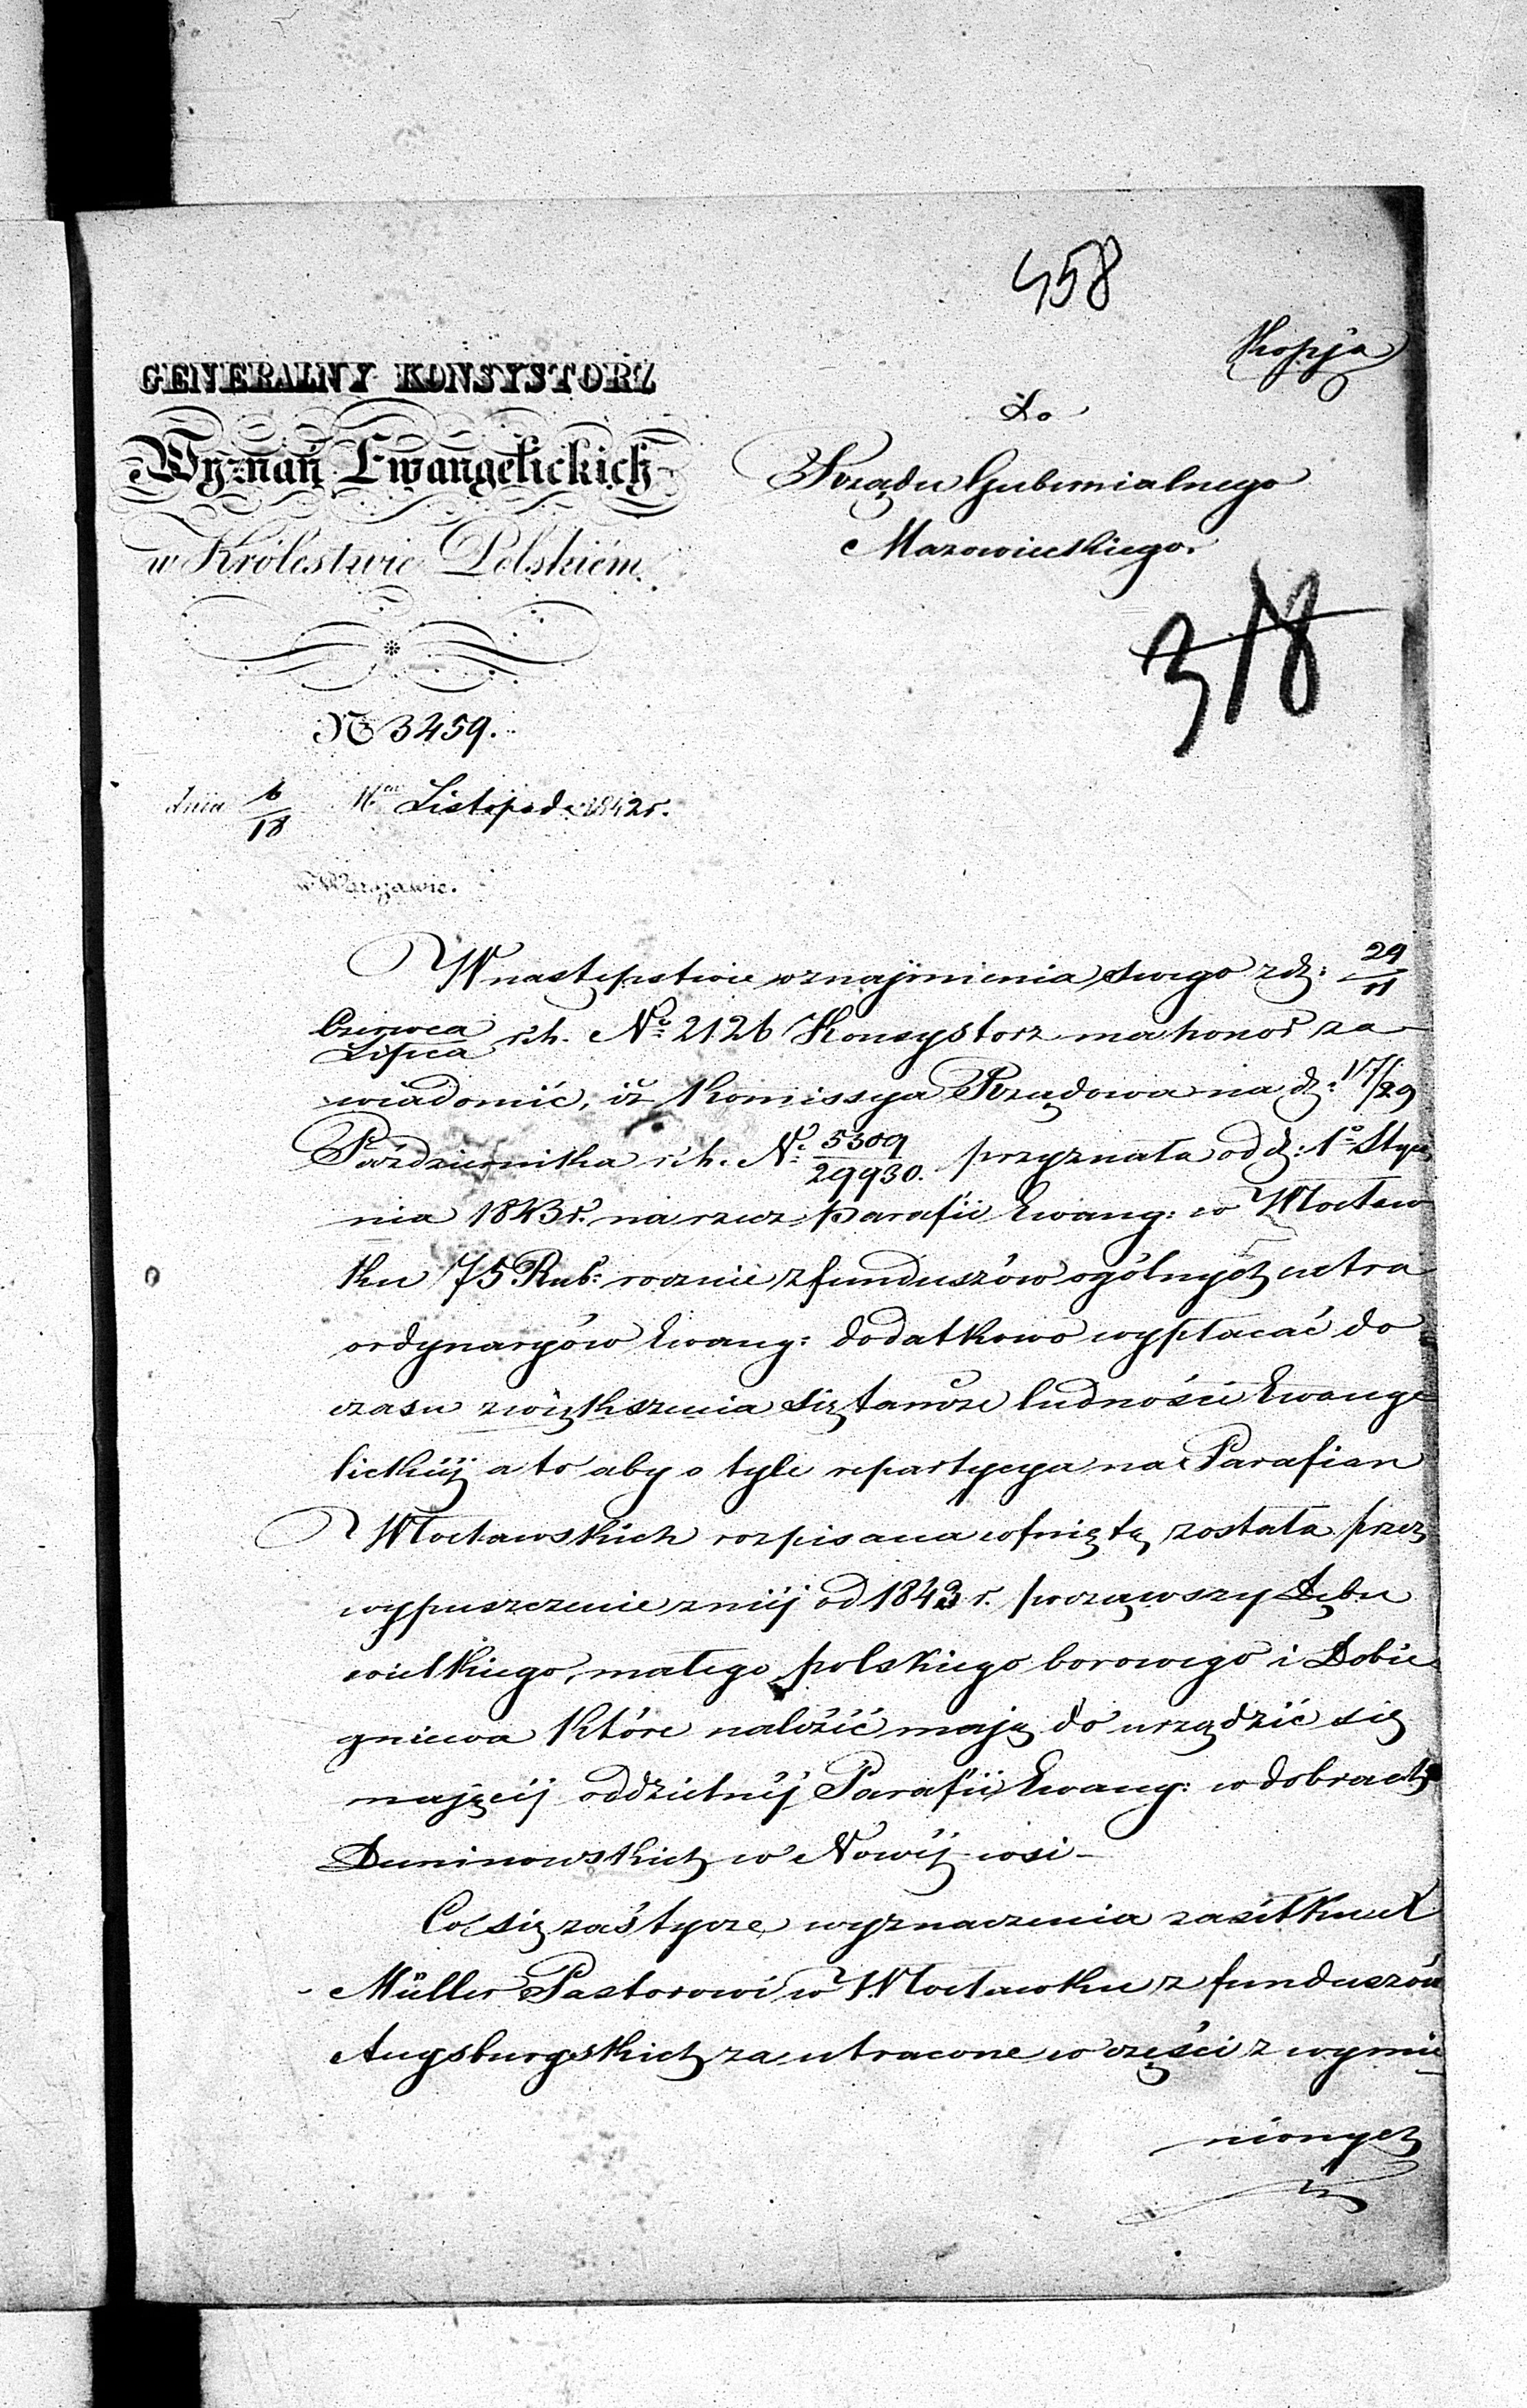 458
Kopja
GENERALNY KONSYSTORZ
Wyznań Ewangelickich
w Królestwie Polskiém.
Do
Rządu Gubernialnego
Mazowieckiego.
318
N 3459.
dnia 6/18 Listopada 1842 r.
w Warszawie.
W następstwie oznajmienia swego z d: 29/11
Czerwca/Lipca r.b. No 2126 Konsystorz ma honor za-
wiadomić, iż Komissya Rządowa na d: 17/29
Października r.b. No 5309/29930. przyznała od d: 1o Stycz
nia 1843 r. na rzecz parafii Ewang: w Włocław
ku 75 Rub: rocznie z funduszów ogólnych extra
ordynaryów Ewang: dodatkowo wypłacać do
czasu zwiększenia się tamże ludności Ewange
lickiej a to aby o tyle repartycya na Parafian
Włocławskich rozpisana cofniętą została przez
wypuszczenie z niej od 1843 r. począwszy Dębu
wielkiego, małego polskiego borowego i Dobie
gniewa które należić mają do urządzić się
mającej oddzielnej Parafii Ewang: w dobrach
Duninowskich w Nowej wsi -
Co się zaś tycze wyznaczenia zasiłku X
Müller Pastorowi w Włocławku z funduszów
Augsburgskich za utracone w części z wymie
nionych